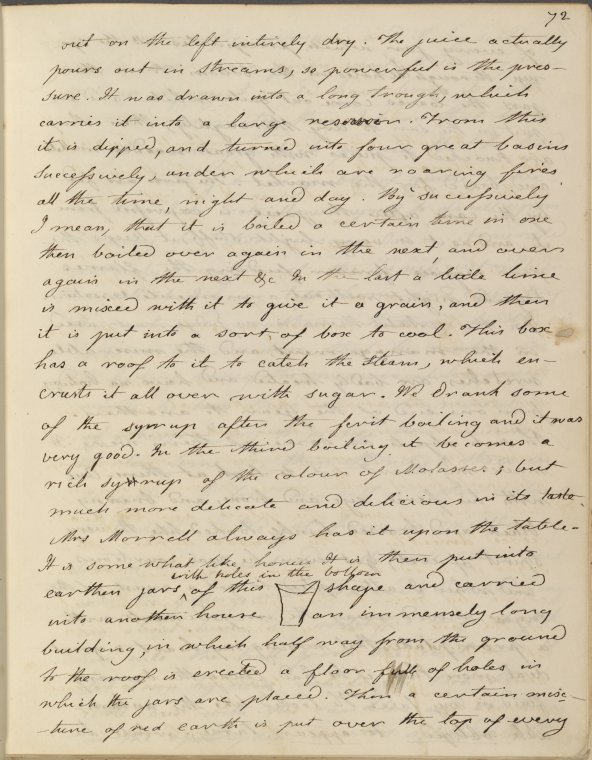 72
out on the left intirely dry. The juice actually
pours out in streams, so powerful is the pres-
sure. It was drawn into a long trough, which
carries it into a large reservoir. From this
it is dipped, and turned into four great basins
successively, under which are roaring fires
all the time, night and day. By successively
I mean, that it is boiled a certain time in one
then boiled over again in the next, and over
again in the next &c In the last a little lime
is mixed with it to give it a grain, and then
it is put into a sort of box to cool. This box
has a roof to it to catch the steam, which en-
crusts it all over with sugar. We drank some
of the syrrup after the first boiling and it was
very good. In the third boiling it becomes a
rich syrup of the colour of Molasses; but
much more delicate and delicious in its taste.
Mrs Morrell always has it upon the table-
It is some what like honey It is then put into
with holes in the bottom
earthen jars ^ of this shape and carried
into another house an immensely long
building, in which half way from the ground
to the roof is erected a floor full of holes in
which the jars are placed. Then a certain mix-
-ture of red earth is put over the top of every